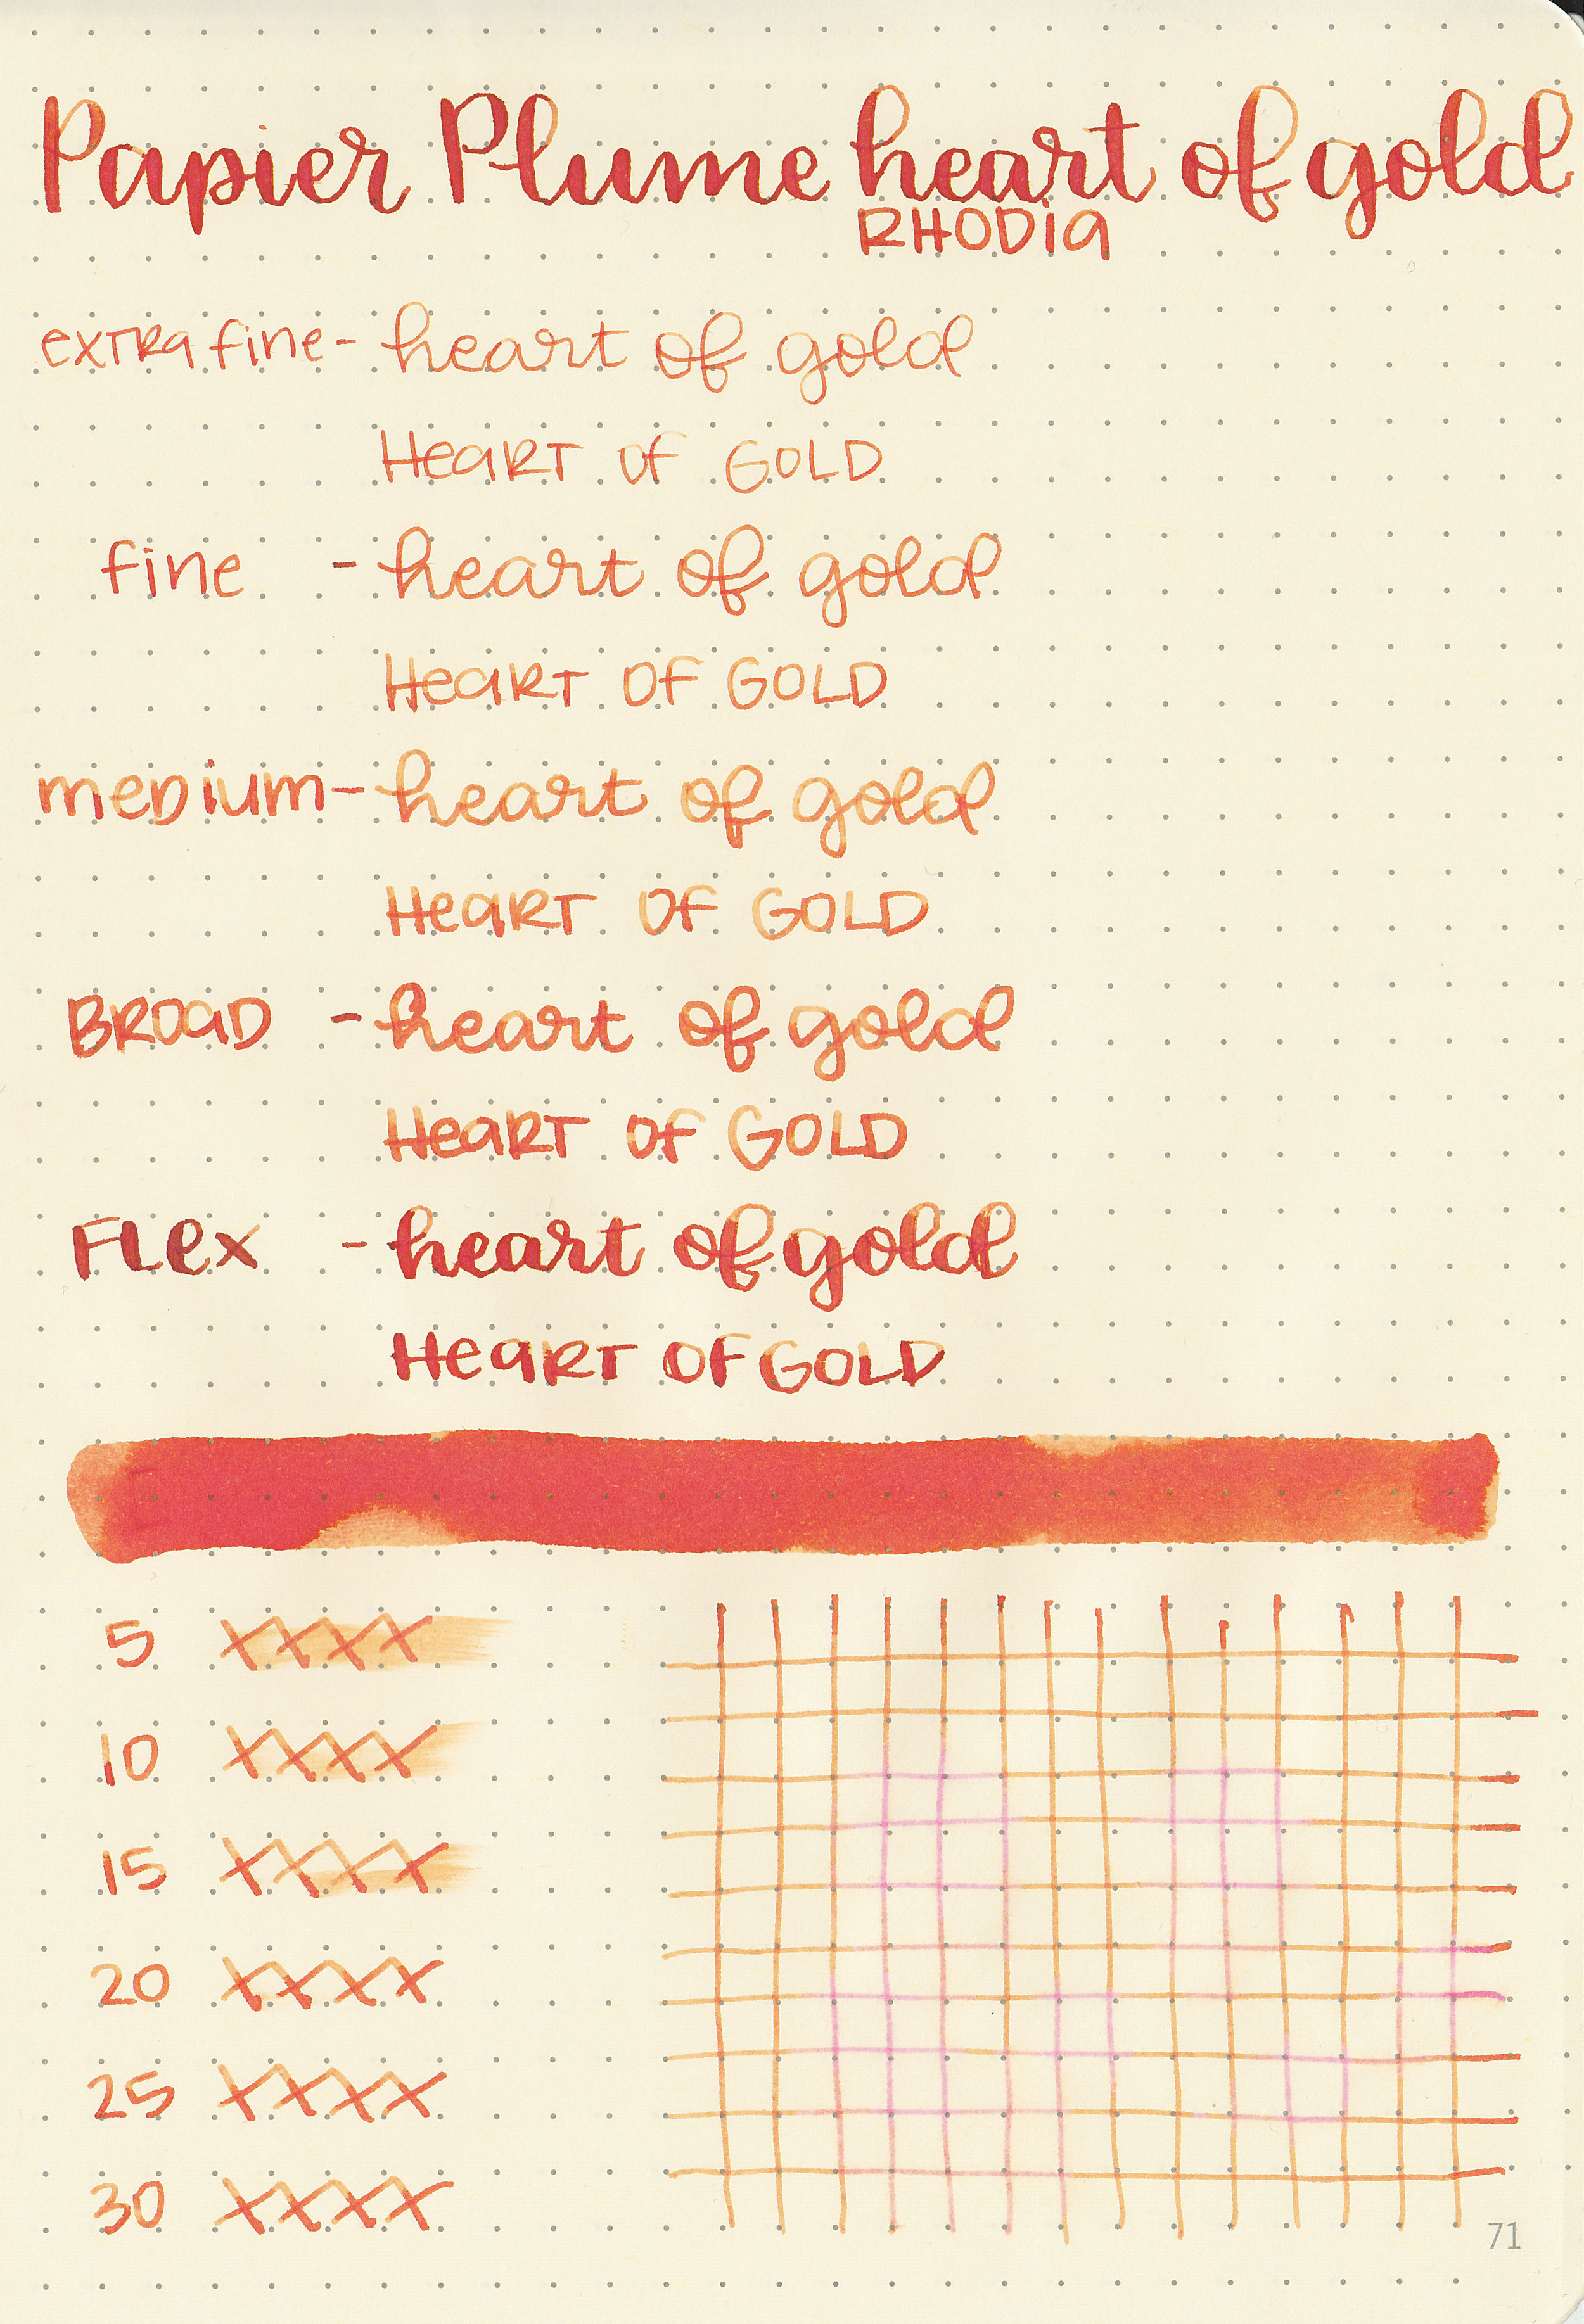 Papier Plume heart of gold
RHODia
exTRa fine - heart of gold
HeaRT OF GOLD
fine - heart of gold
HeaRT OF GOLD
meDium - heart of gold
HeaRT OF GOLD
BROaD - heart of gold
HeaRT OF GOLD
FLex - heart of gold
HeaRT OF GOLD
5 XXXX
10 XXXX
15 XXXX
20 XXXX
25 XXXX
30 XXXX
71